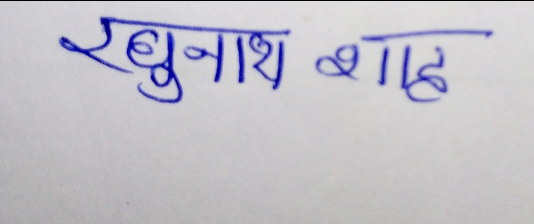 रघुनाथ शाह